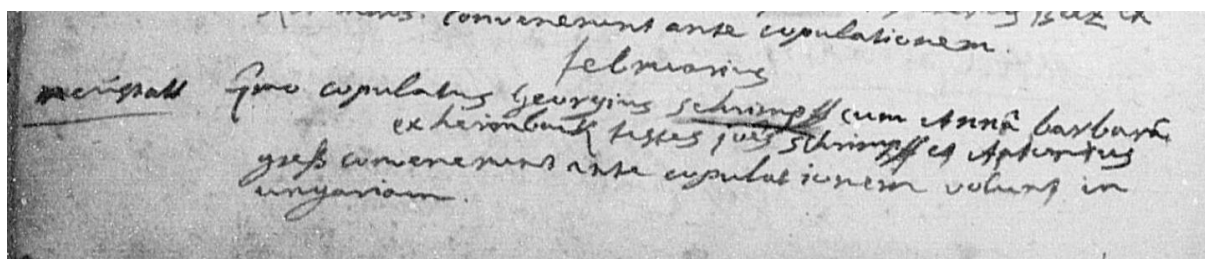 convenerunt ante copulationem.
februarius
neustatt 1mo copulatus Georgius schrimpff cum Annâ barbarâ
ex heimbach testes joes schrimpff et Antonius
greß convenerunt ante copulationem volunt in
ungariam.